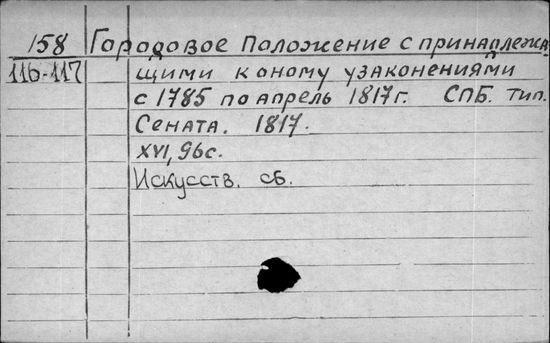 158 Городовое Положение с принадлежа
116-117 щими к оному узаконениями
с 1785 по апрель 1817 г. СПБ. тип.
Сената. 1817.
XVI, 96 с.
Искусств. сб.